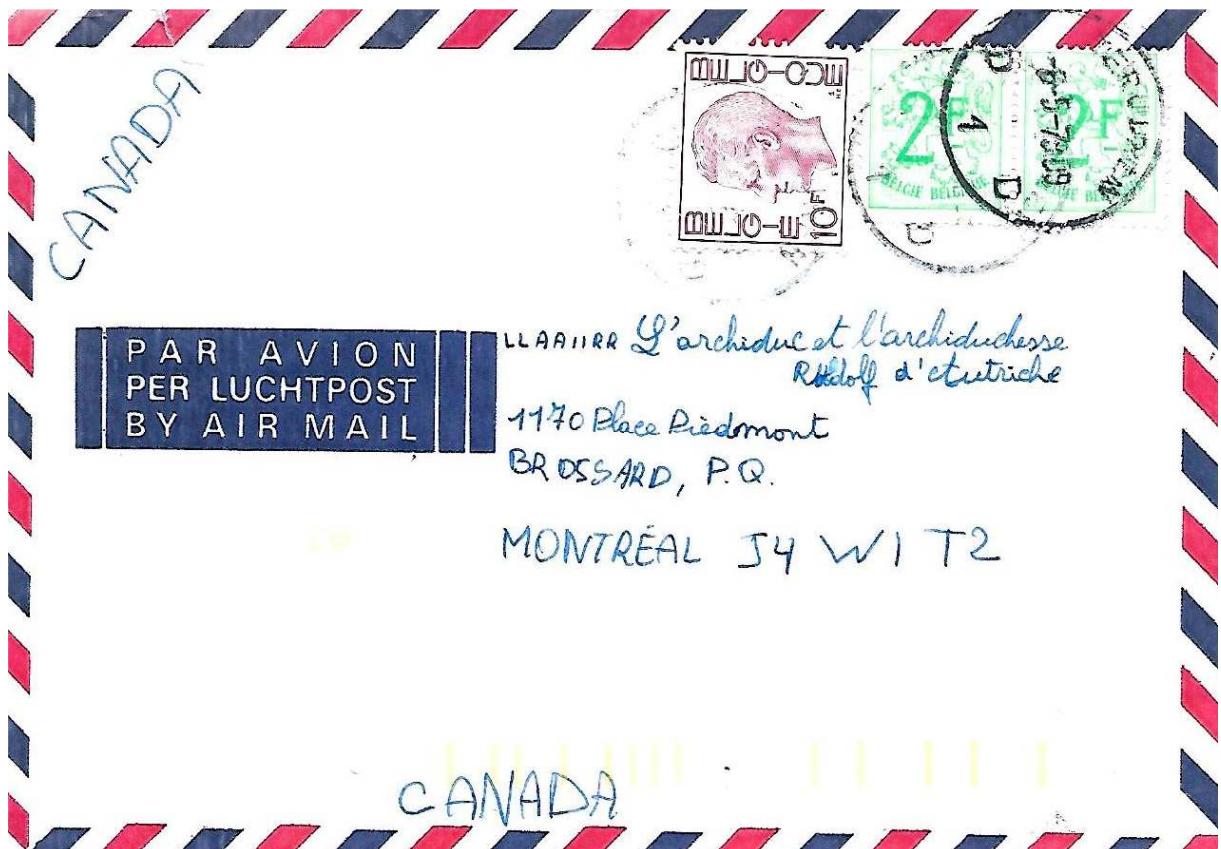 CANADA
BELGIQUE
BELGIË
10F
2F
BELGIE BELGIQUE
2F
BELGIE BELGIQUE
D 1 D
PAR AVION
PER LUCHTPOST
BY AIR MAIL
LLAAIIRR L'archiduc et l'archiduchesse
Rudolf d'Autriche
1170 Place Piedmont
BROSSARD, P.Q.
MONTRÉAL J4 W1 T2
CANADA